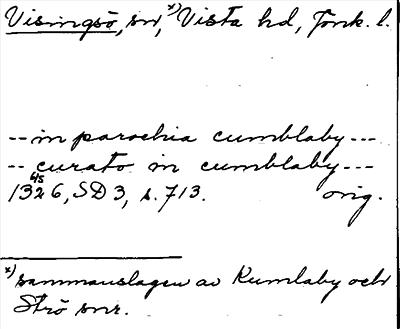 Visingsö, sn, x) Vista hd, Jönk. l.
-- in parochia cumblaby ---
-- curato in cumblaby ---
1326, SD 3, s. 713. orig.
x) sammanslagen av Kumlaby och
Strö snr.